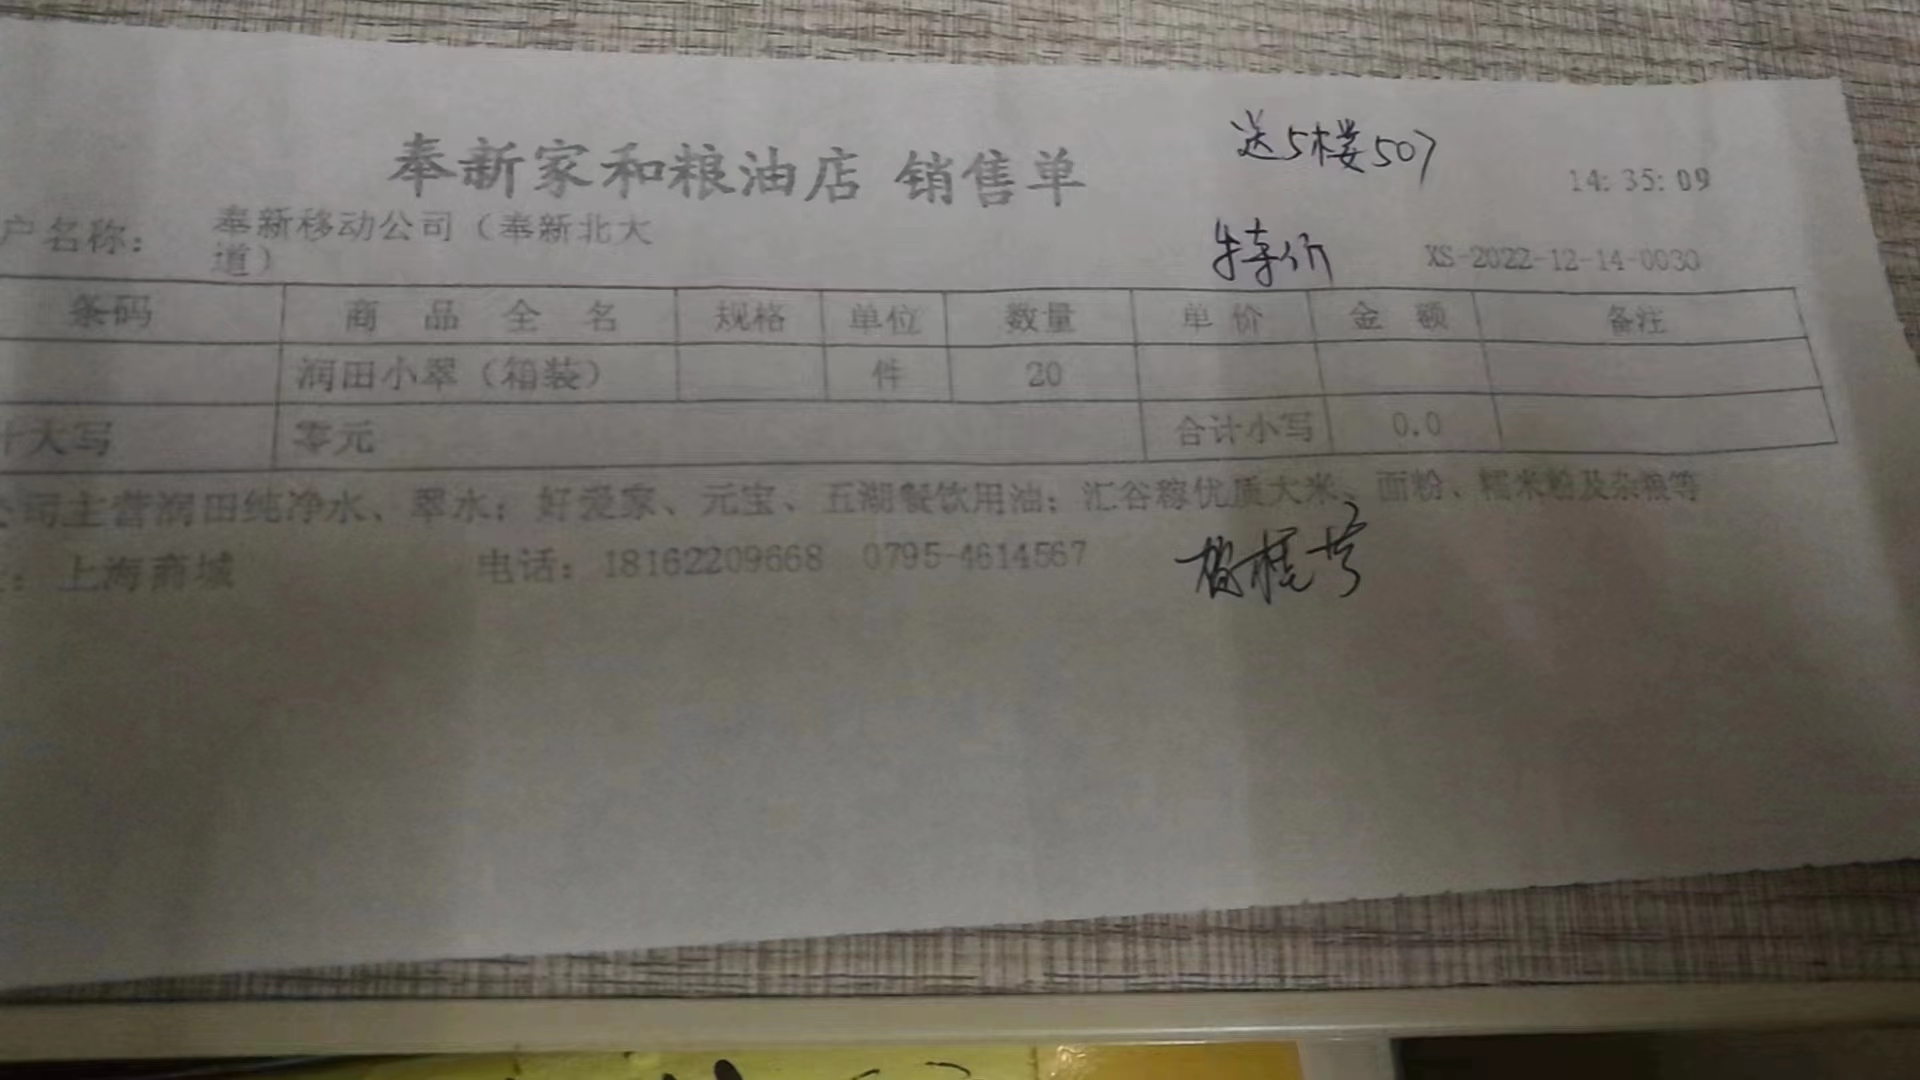 奉新家和粮油店 销售单
送5楼507
14:35:09
户名称： 奉新移动公司（奉新北大
道）
特价
XS-2022-12-14-0030
条码 商品全名 规格 单位 数量 单价 金额 备注
润田小翠（箱装） 件 20
计大写 零元 合计小写 0.0
公司主营润田纯净水、翠水；好爱家、元宝、五湖餐饮用油；汇谷稼优质大米、面粉、糯米粉及杂粮等
：上海商城 电话：18162209668 0795-4614567